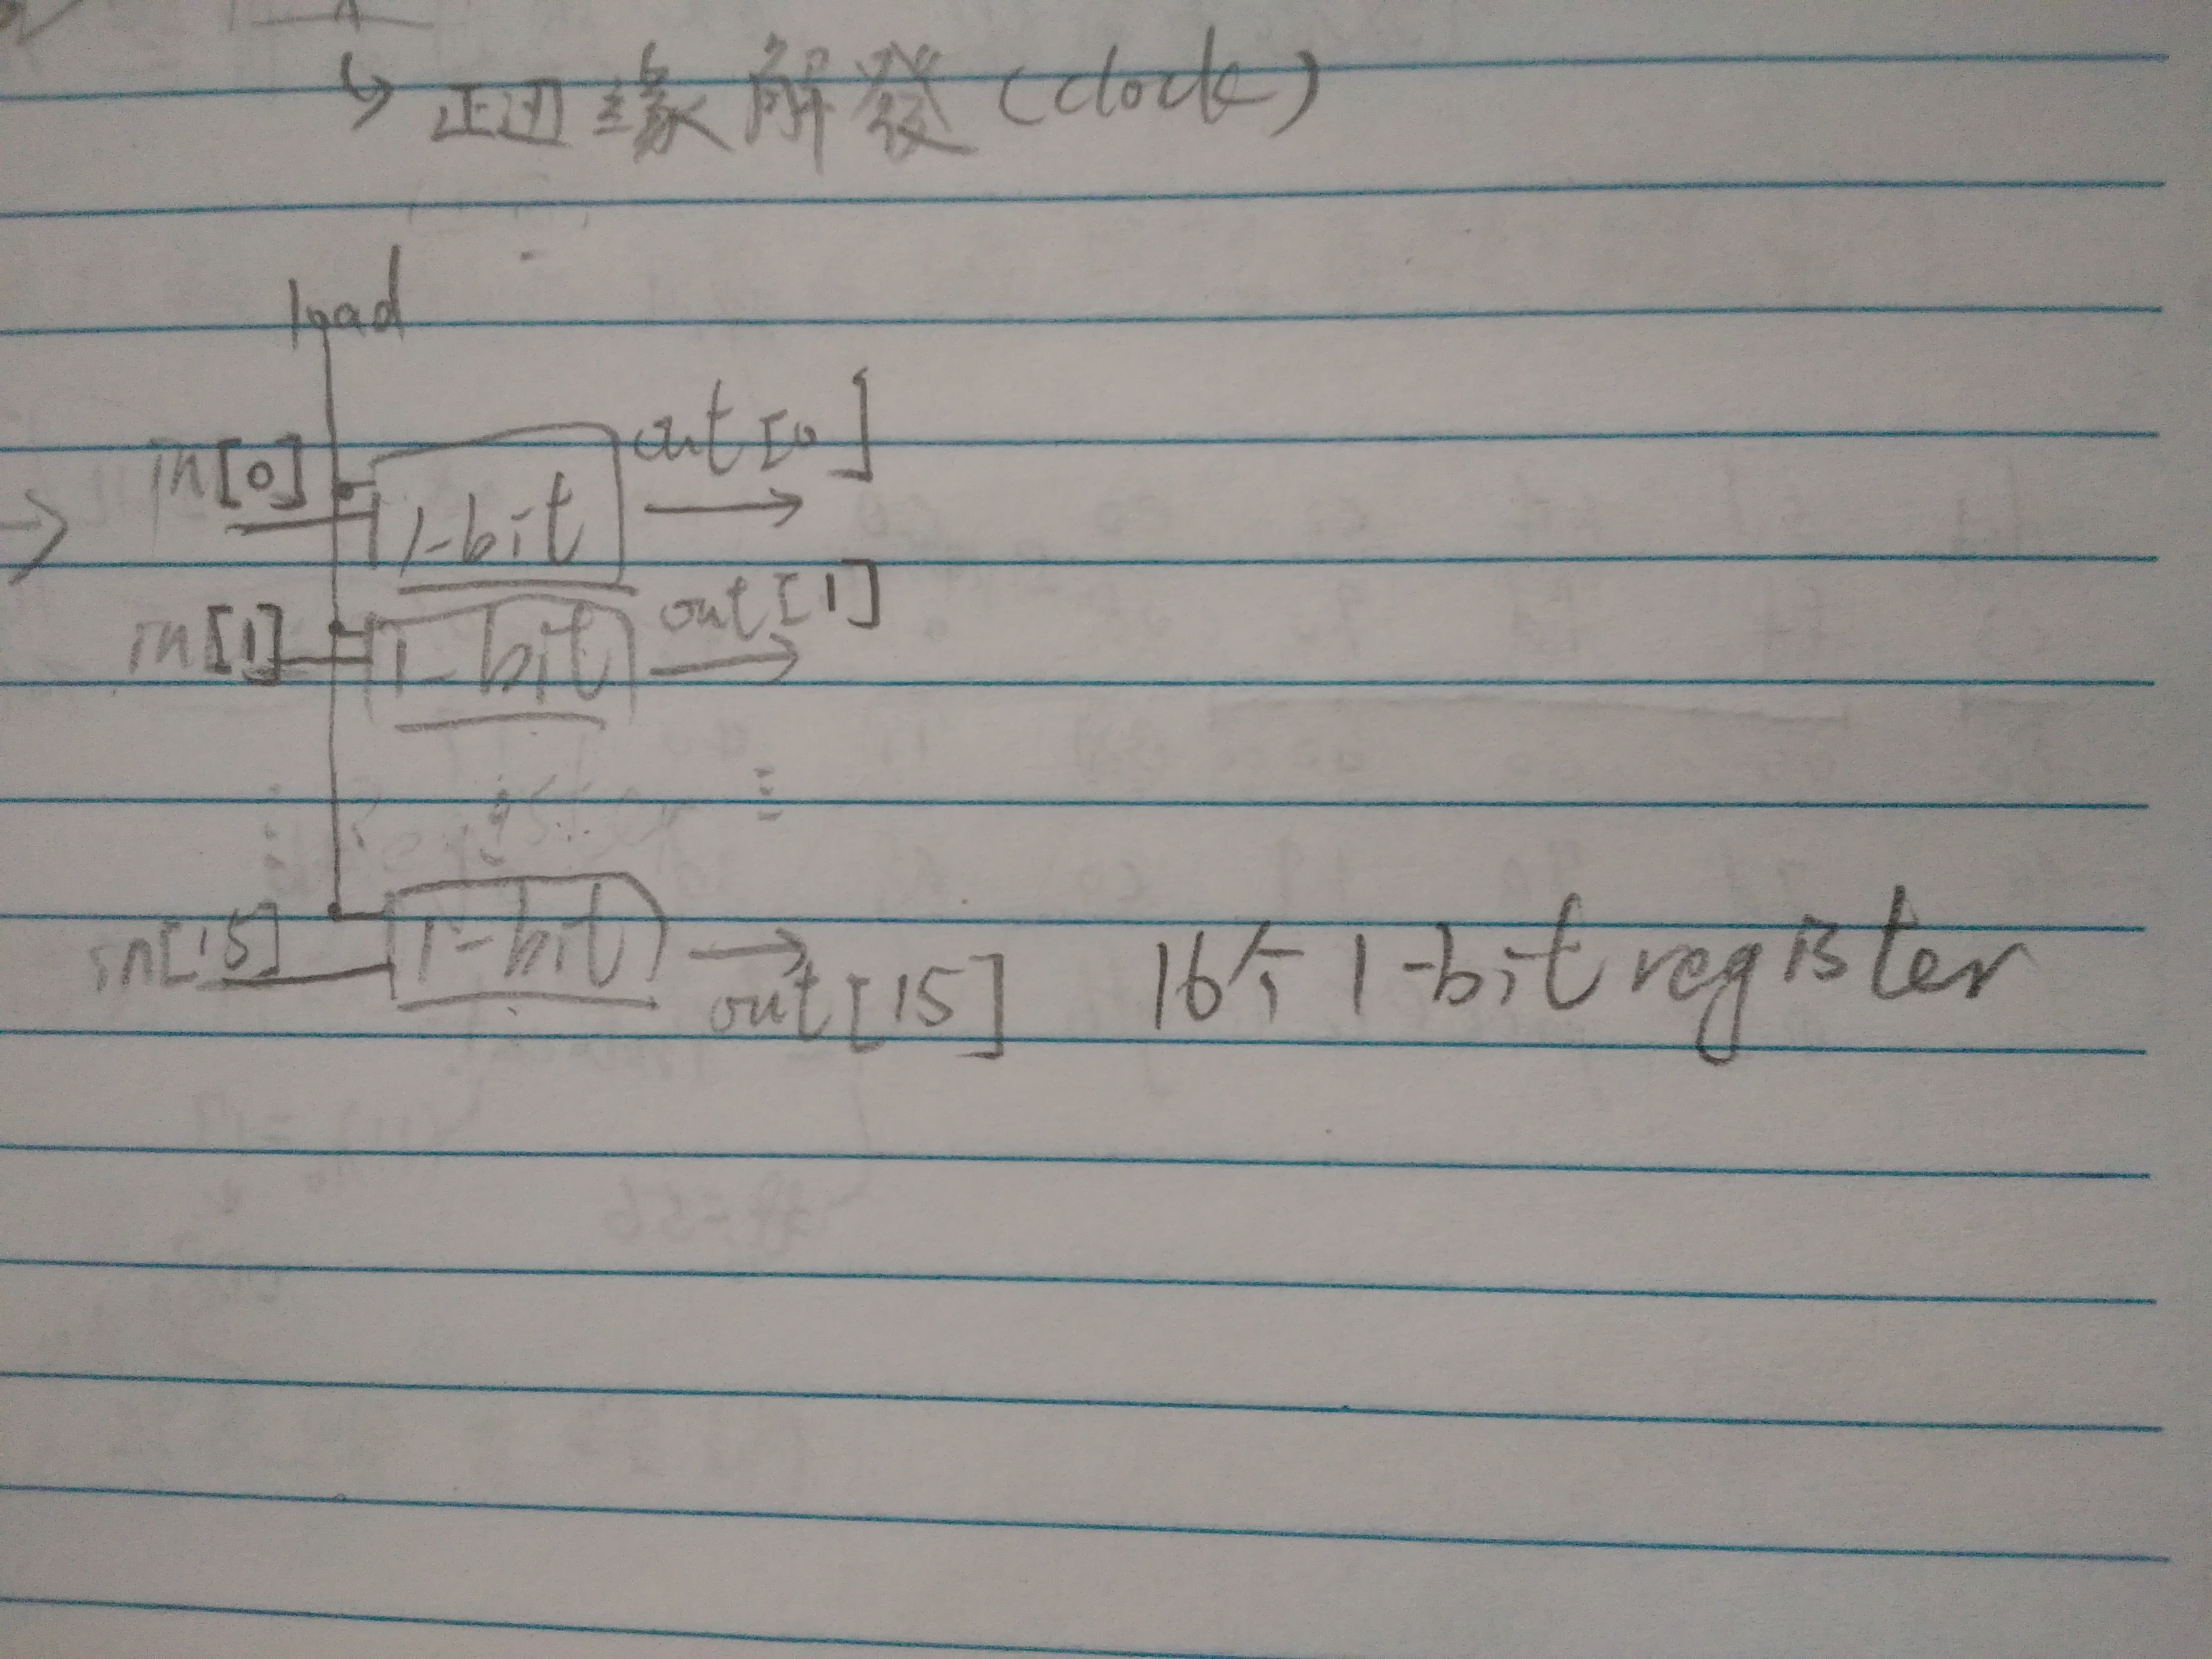 正边缘解發 (clock)
load
in[0] 1-bit out[0]
in[1] 1-bit out[1]
in[15] 1-bit out[15]
16个 1-bit register